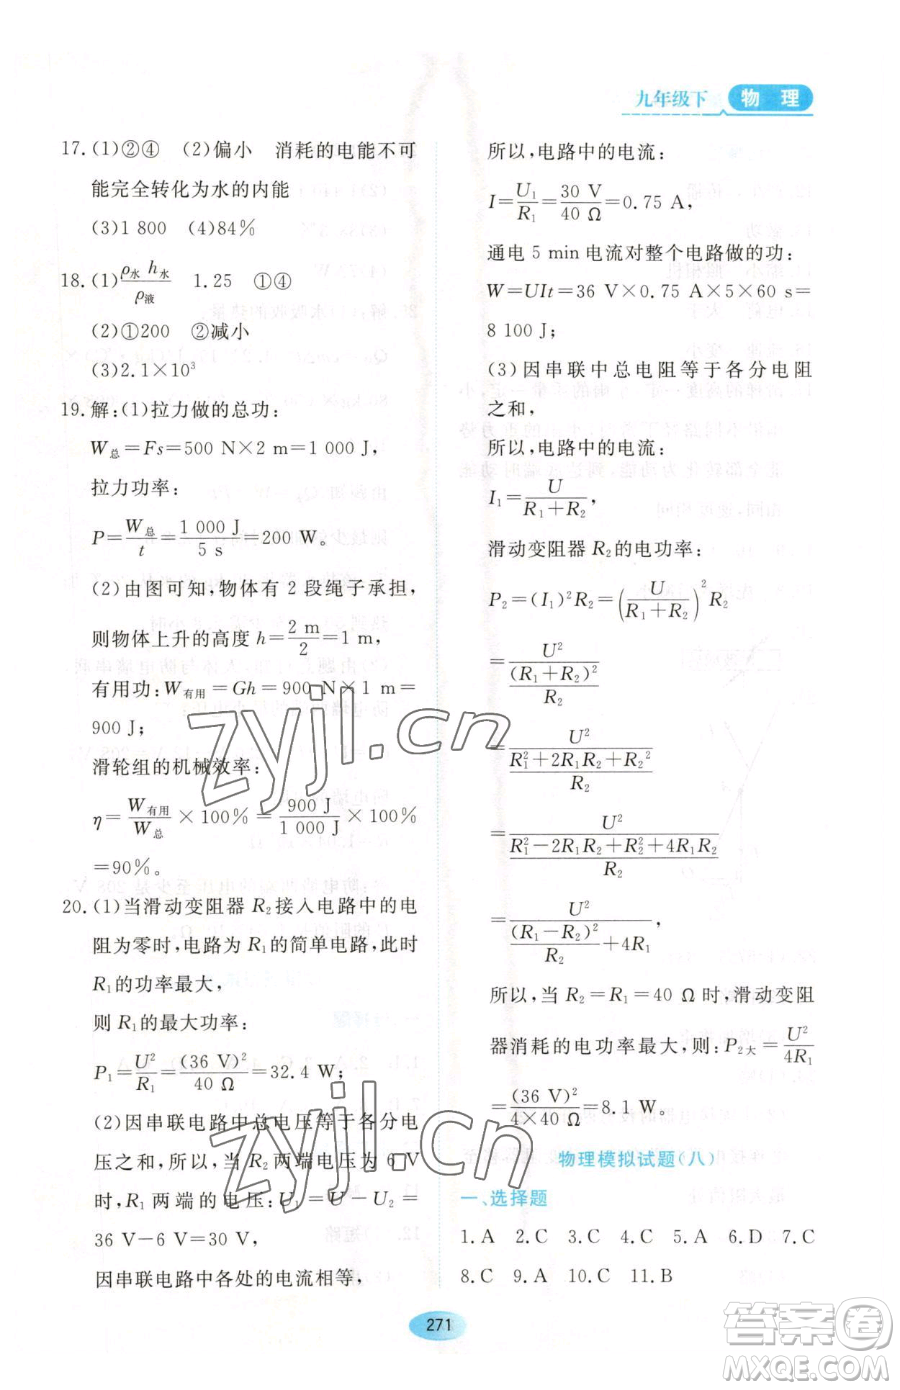 九年级下 物 理
17. (1)②④ (2)偏小 消耗的电能不可
能完全转化为水的内能
(3)1 800 (4)84%
18. (1)ρ水 h水/ρ液 1.25 ①④
(2)①200 ②减小
(3)2.1×10³
19. 解:(1)拉力做的总功:
W总=Fs=500 N×2 m=1 000 J,
拉力功率:
P=W总/t=1 000 J/5 s=200 W。
(2)由图可知,物体有 2 段绳子承担,
则物体上升的高度 h=2 m/2=1 m,
有用功:W有用=Gh=900 N×1 m=
900 J;
滑轮组的机械效率:
η=W有用/W总×100%=900 J/1 000 J×100%
=90%。
20. (1)当滑动变阻器 R₂接入电路中的电
阻为零时,电路为 R₁的简单电路,此时
R₁的功率最大,
则 R₁的最大功率:
P₁=U²/R₁=(36 V)²/40 Ω=32.4 W;
(2)因串联电路中总电压等于各分电
压之和,所以,当 R₂ 两端电压为 6 V
时,R₁ 两端的电压:U₁=U−U₂=
36 V−6 V=30 V,
因串联电路中各处的电流相等,
所以,电路中的电流:
I=U₁/R₁=30 V/40 Ω=0.75 A,
通电 5 min 电流对整个电路做的功:
W=UIt=36 V×0.75 A×5×60 s=
8 100 J;
(3)因串联中总电阻等于各分电阻
之和,
所以,电路中的电流:
I₁=U/(R₁+R₂),
滑动变阻器 R₂的电功率:
P₂=(I₁)²R₂=(U/(R₁+R₂))²R₂
=U²/((R₁+R₂)²/R₂)
=U²/((R₁²+2R₁R₂+R₂²)/R₂)
=U²/((R₁²−2R₁R₂+R₂²+4R₁R₂)/R₂)
=U²/((R₁−R₂)²/R₂+4R₁)
所以,当 R₂=R₁=40 Ω时,滑动变阻
器消耗的电功率最大,则:P₂大=U²/4R₁
=(36 V)²/(4×40 Ω)=8.1 W。
物理模拟试题(八)
一、选择题
1. A 2. C 3. C 4. A 5. A 6. D 7. C
8. C 9. A 10. C 11. B
271
zyjl.cn
zyjl.cn
答案圈
MXQE.COM